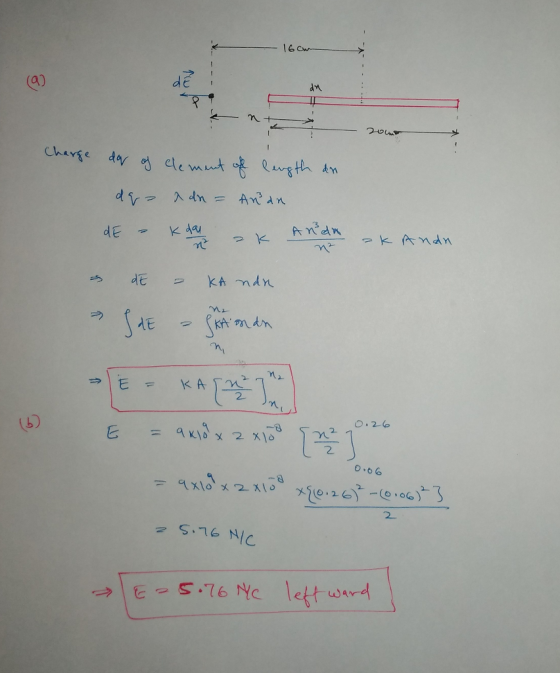 16cm
(a)
dE
P
dx
x
20cm
Charge dq of element of length dx
dq = λ dx = Ax³ dx
dE = K dq/x² = K Ax³dx/x² = K A x dx
⇒ dE = KA x dx
⇒ ∫dE = ∫_{x₁}^{x₂} KA x dx
⇒ E = KA [x²/2]_{x₁}^{x₂}
(b) E = 9×10⁹ × 2 ×10⁻⁸ [x²/2]_{0.06}^{0.26}
= 9×10⁹ × 2 ×10⁻⁸ × {(0.26)² - (0.06)²}/2
= 5.76 N/C
⇒ E = 5.76 N/C leftward